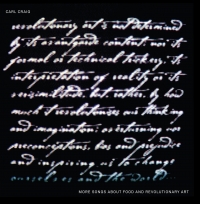 CARL CRAIG
revolutionary art is not determined
by its avantgarde content nor its
formal or technical trickery, its
interpretation of reality or its
verisimilitude, but, rather, by how
much it revolutionizes our thinking
and imagination; overturning our
preconceptions, bias and prejudice
and inspiring us to change
ourselves and the world
MORE SONGS ABOUT FOOD AND REVOLUTIONARY ART